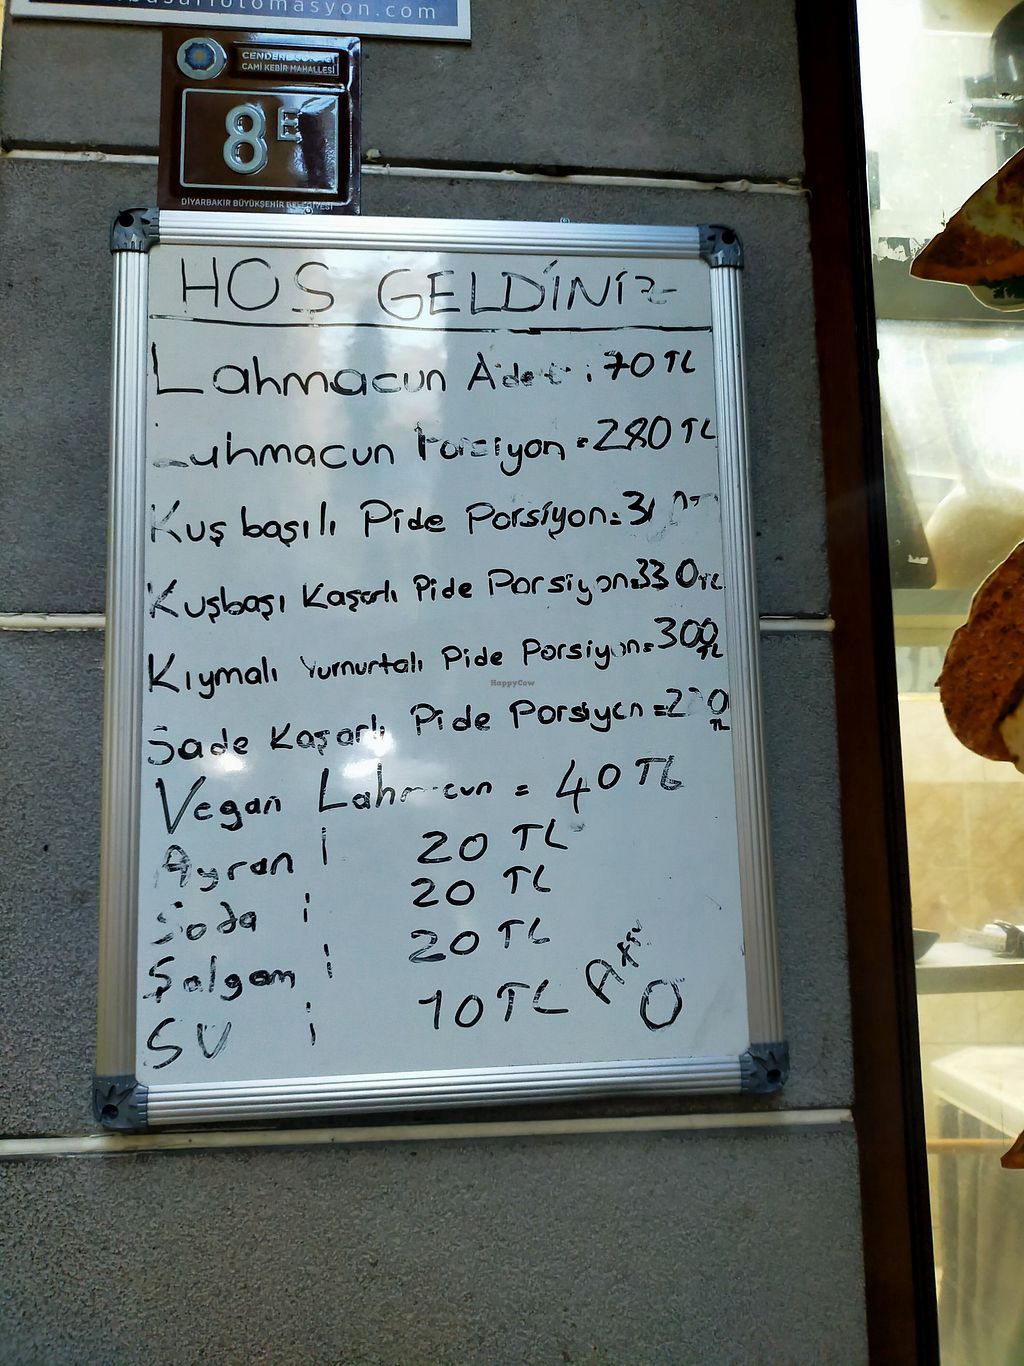 basariotomasyon.com
CENDERE SOKAĞI
CAMİ KEBİR MAHALLESİ
8E
DİYARBAKIR BÜYÜKŞEHİR BELEDİYESİ
HOS GELDİNİZ
Lahmacun Adet : 70 TL
Lahmacun Porsiyon = 280 TL
Kuş başılı Pide Porsiyon =
Kuşbaşı Kaşarlı Pide Porsiyon = 330 TL
Kıymalı Yumurtalı Pide Porsiyon = 300 TL
Sade Kaşarlı Pide Porsiyon = TL
Vegan Lahmacun = 40 TL
Ayran : 20 TL
Soda : 20 TL
Şalgam : 20 TL
SU : 10 TL
HappyCow